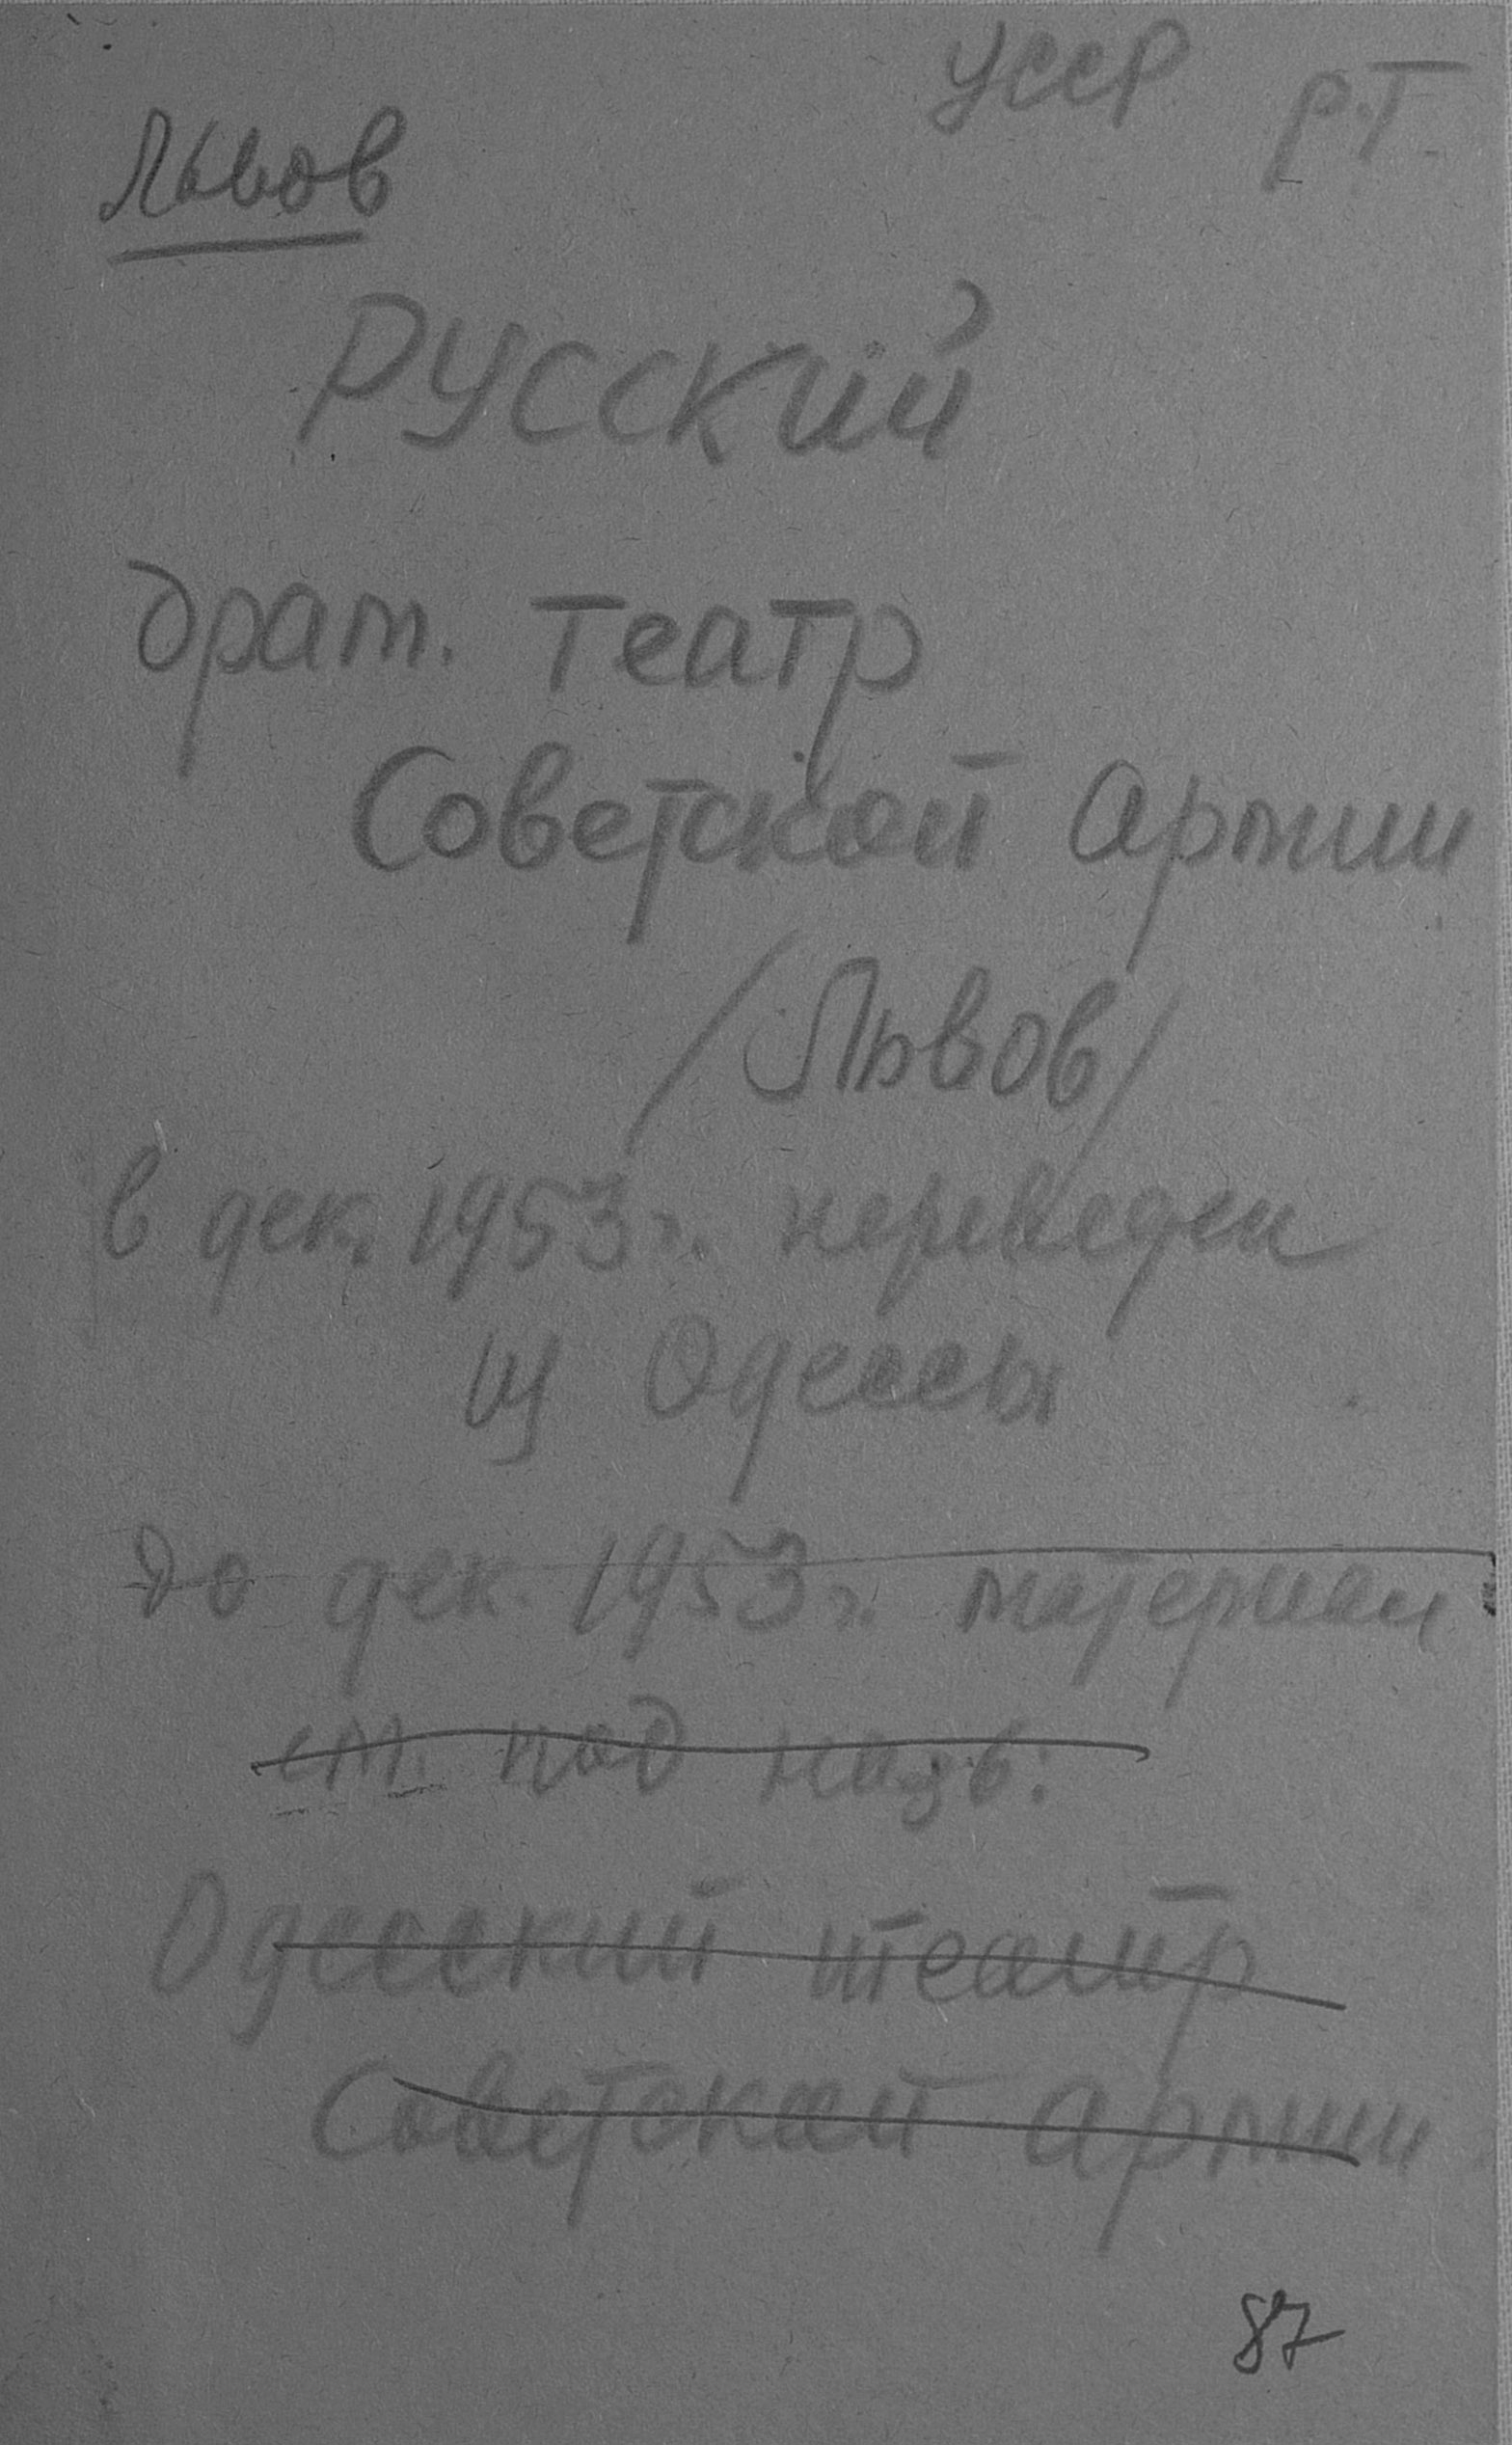 УССР Р.Т.
Львов
Русский
драм. театр
Советской Армии
/Львов/
в дек. 1953 г. переведен
из Одессы
до дек. 1953 г. материал
см. под назв.:
Одесский театр
Советской Армии
87